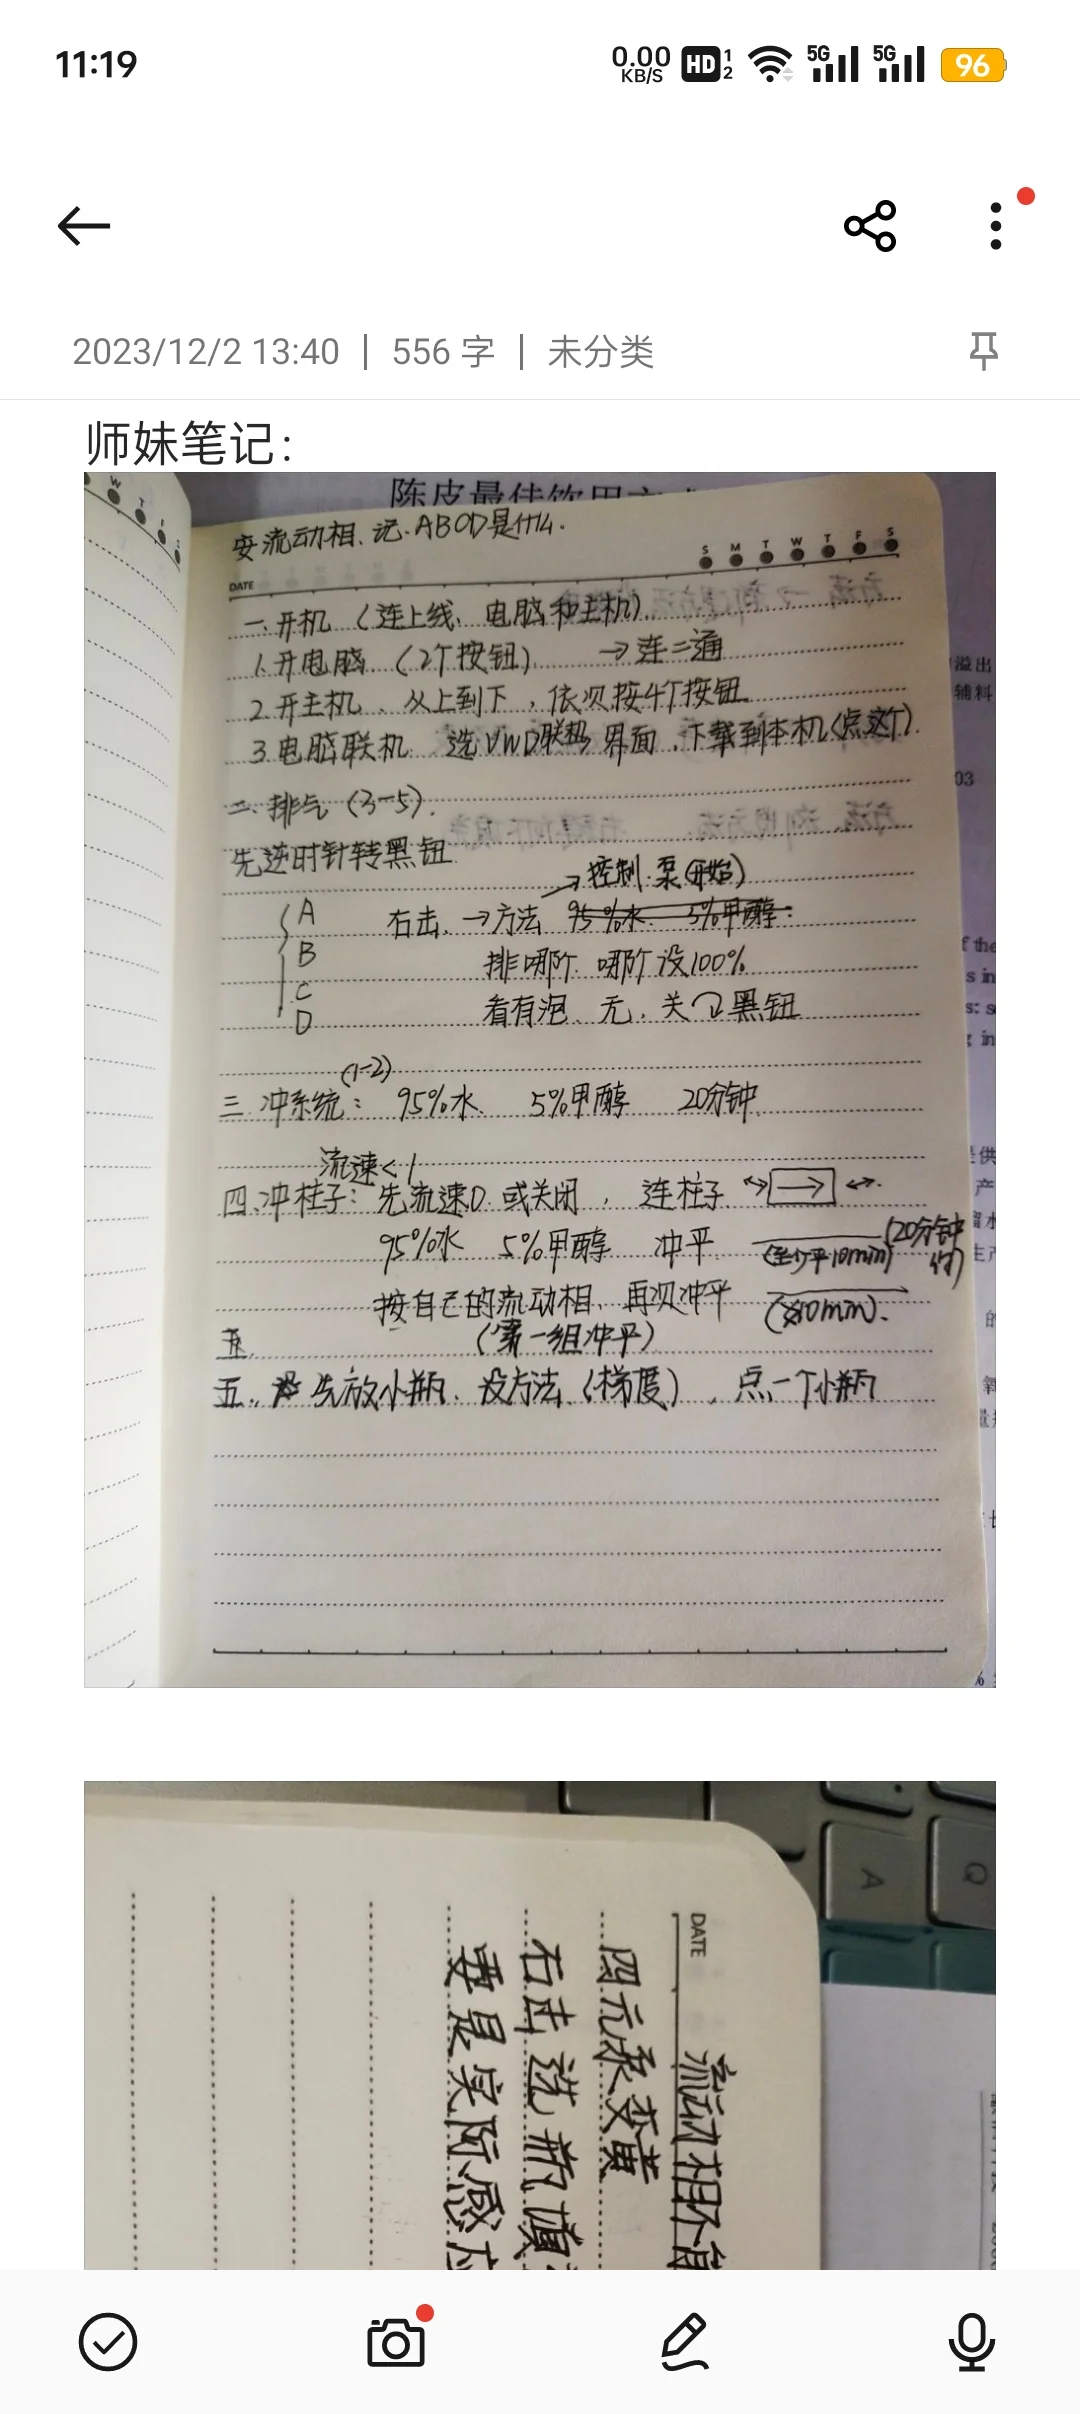 11:19
0.00 KB/S HD 1 2 5G 5G 96
2023/12/2 13:40 | 556 字 | 未分类
师妹笔记：
陈皮最佳饮用方式
安流动相、记.ABCD是什么.
S M T W T F S
DATE
一.开机（连上线、电脑和主机）
1.开电脑（2个按钮） →连二通
2.开主机、从上到下，依次按4个按钮
3.电脑联机 选VWD联机界面，下载到本机(点这个).
二、排气（3-5）.
先逆时针转黑钮
→控制.泵(开始)
A 右击.→方法 95%水. 5%甲醇.
B 排哪阶 哪阶设100%
C
D 看有泡、无，关↷黑钮
(1-2)
三 冲系统： 95%水. 5%甲醇 20分钟.
流速<1
四.冲柱子：先流速0.或关闭，连柱子
95%水 5%甲醇 冲平 (至少平10min) (20分钟
按自己的流动相、再次冲平
(第一组冲平)
五.
五、先放小瓶、设方法（梯度），点一个小瓶
溢出
辅料
03
f the
s in
产
的
氧
W T F S
A Q
DATE
流动相不
四元泵变黄
右击 选 瓶填
要是实际感应